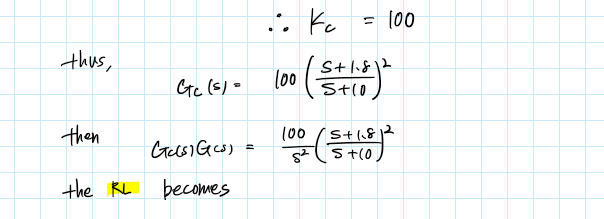 ∴ Kc = 100
thus,
Gc(s) = 100 ( (s+1.8) / (s+10) )²
then
Gc(s)G(s) = 100/s² ( (s+1.8) / (s+10) )²
the RL becomes